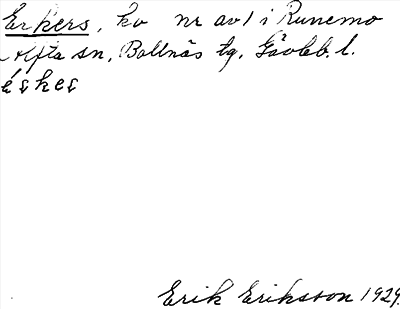 Erkers, ko nr av 1 i Runemo
Alfta sn, Bollnäs tg, Gävleb. l.
Erik Eriksson 1929.